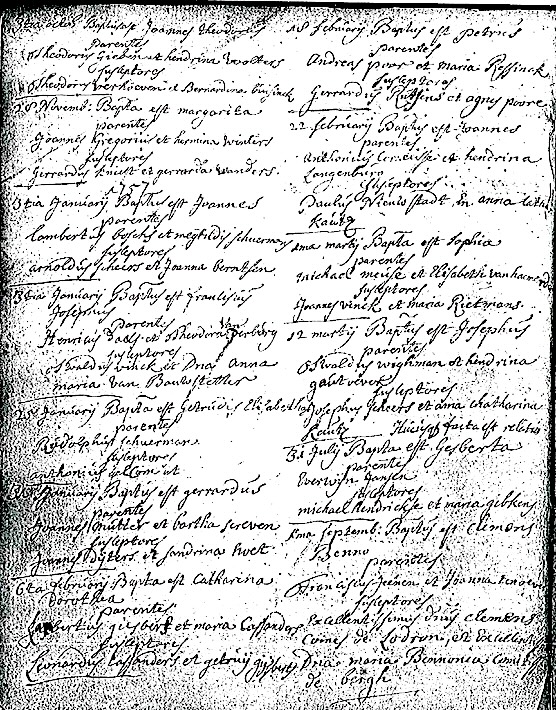 Baptus est Joannes Theodorus
parentes
Theodorus Gieben et hendrina wolters
susleptores
Theodorus verhoeven et Bernardina
28 Novemb: Bapta est margarita
parentes
Joannes Gregorius et hermina winters
susleptores
Gerrardus Knist et gerrarda wanders
1757
13tia Januarij Baptus est Joannes
parentes
lambertus boschs et megtildis schuerman
susleptores
arnoldus scheers et Joanna Berntsen
13tia Januarij Baptus est
Josephus
parentes
Henricus Daals et Theodora van
susleptores
oswaldus vinck et Dna anna
maria van
Januarij Bapta est getrudis Elisabetha
parentes
Rudolphus schuerman
susleptores
anthonius et
Januarij Baptus est gerrardus
parentes
Joannes mutter et bartha sereven
susleptores
Joannes Dyters et sandrina hoet
6ta februarij Bapta est Catharina
dorothea
parentes
Lambertus gisbert et maria Cassanders
susleptores
Leonardus Cassanders et getruij gysberts
18 februarij Baptus est petrus
parentes
Andreas poor et maria Ryssinck
susleptores
Gerrardus Rutjens et agnes poore
22 februarij Baptus est Joannes
parentes
anthonius et hendrina
Langenburg
susleptores
Paulus Nieuwstadt in anna
Kautz
1ma martij Bapta est sophia
parentes
michael meuse et Elisabeth van
susleptores
Joannes vinck et maria Rietmans
12 martij Baptus est Josephus
parentes
oswaldus wighman et hendrina
gaut
susleptores
Josephus scheers et anna chatharina
Kautz facta est relatio
31 Julij Bapta est Gesberta
parentes
Everwijn Jansen
susleptores
michael hendrickse et maria gibkens
1ma septemb: Baptus est Clemens
Benno
parentes
Franciscus Jenen et Joanna
susleptores
Excellentissimus Dnus Clemens
Comes de Lodron, et Excellens
Dna maria Bennonia
de bergh